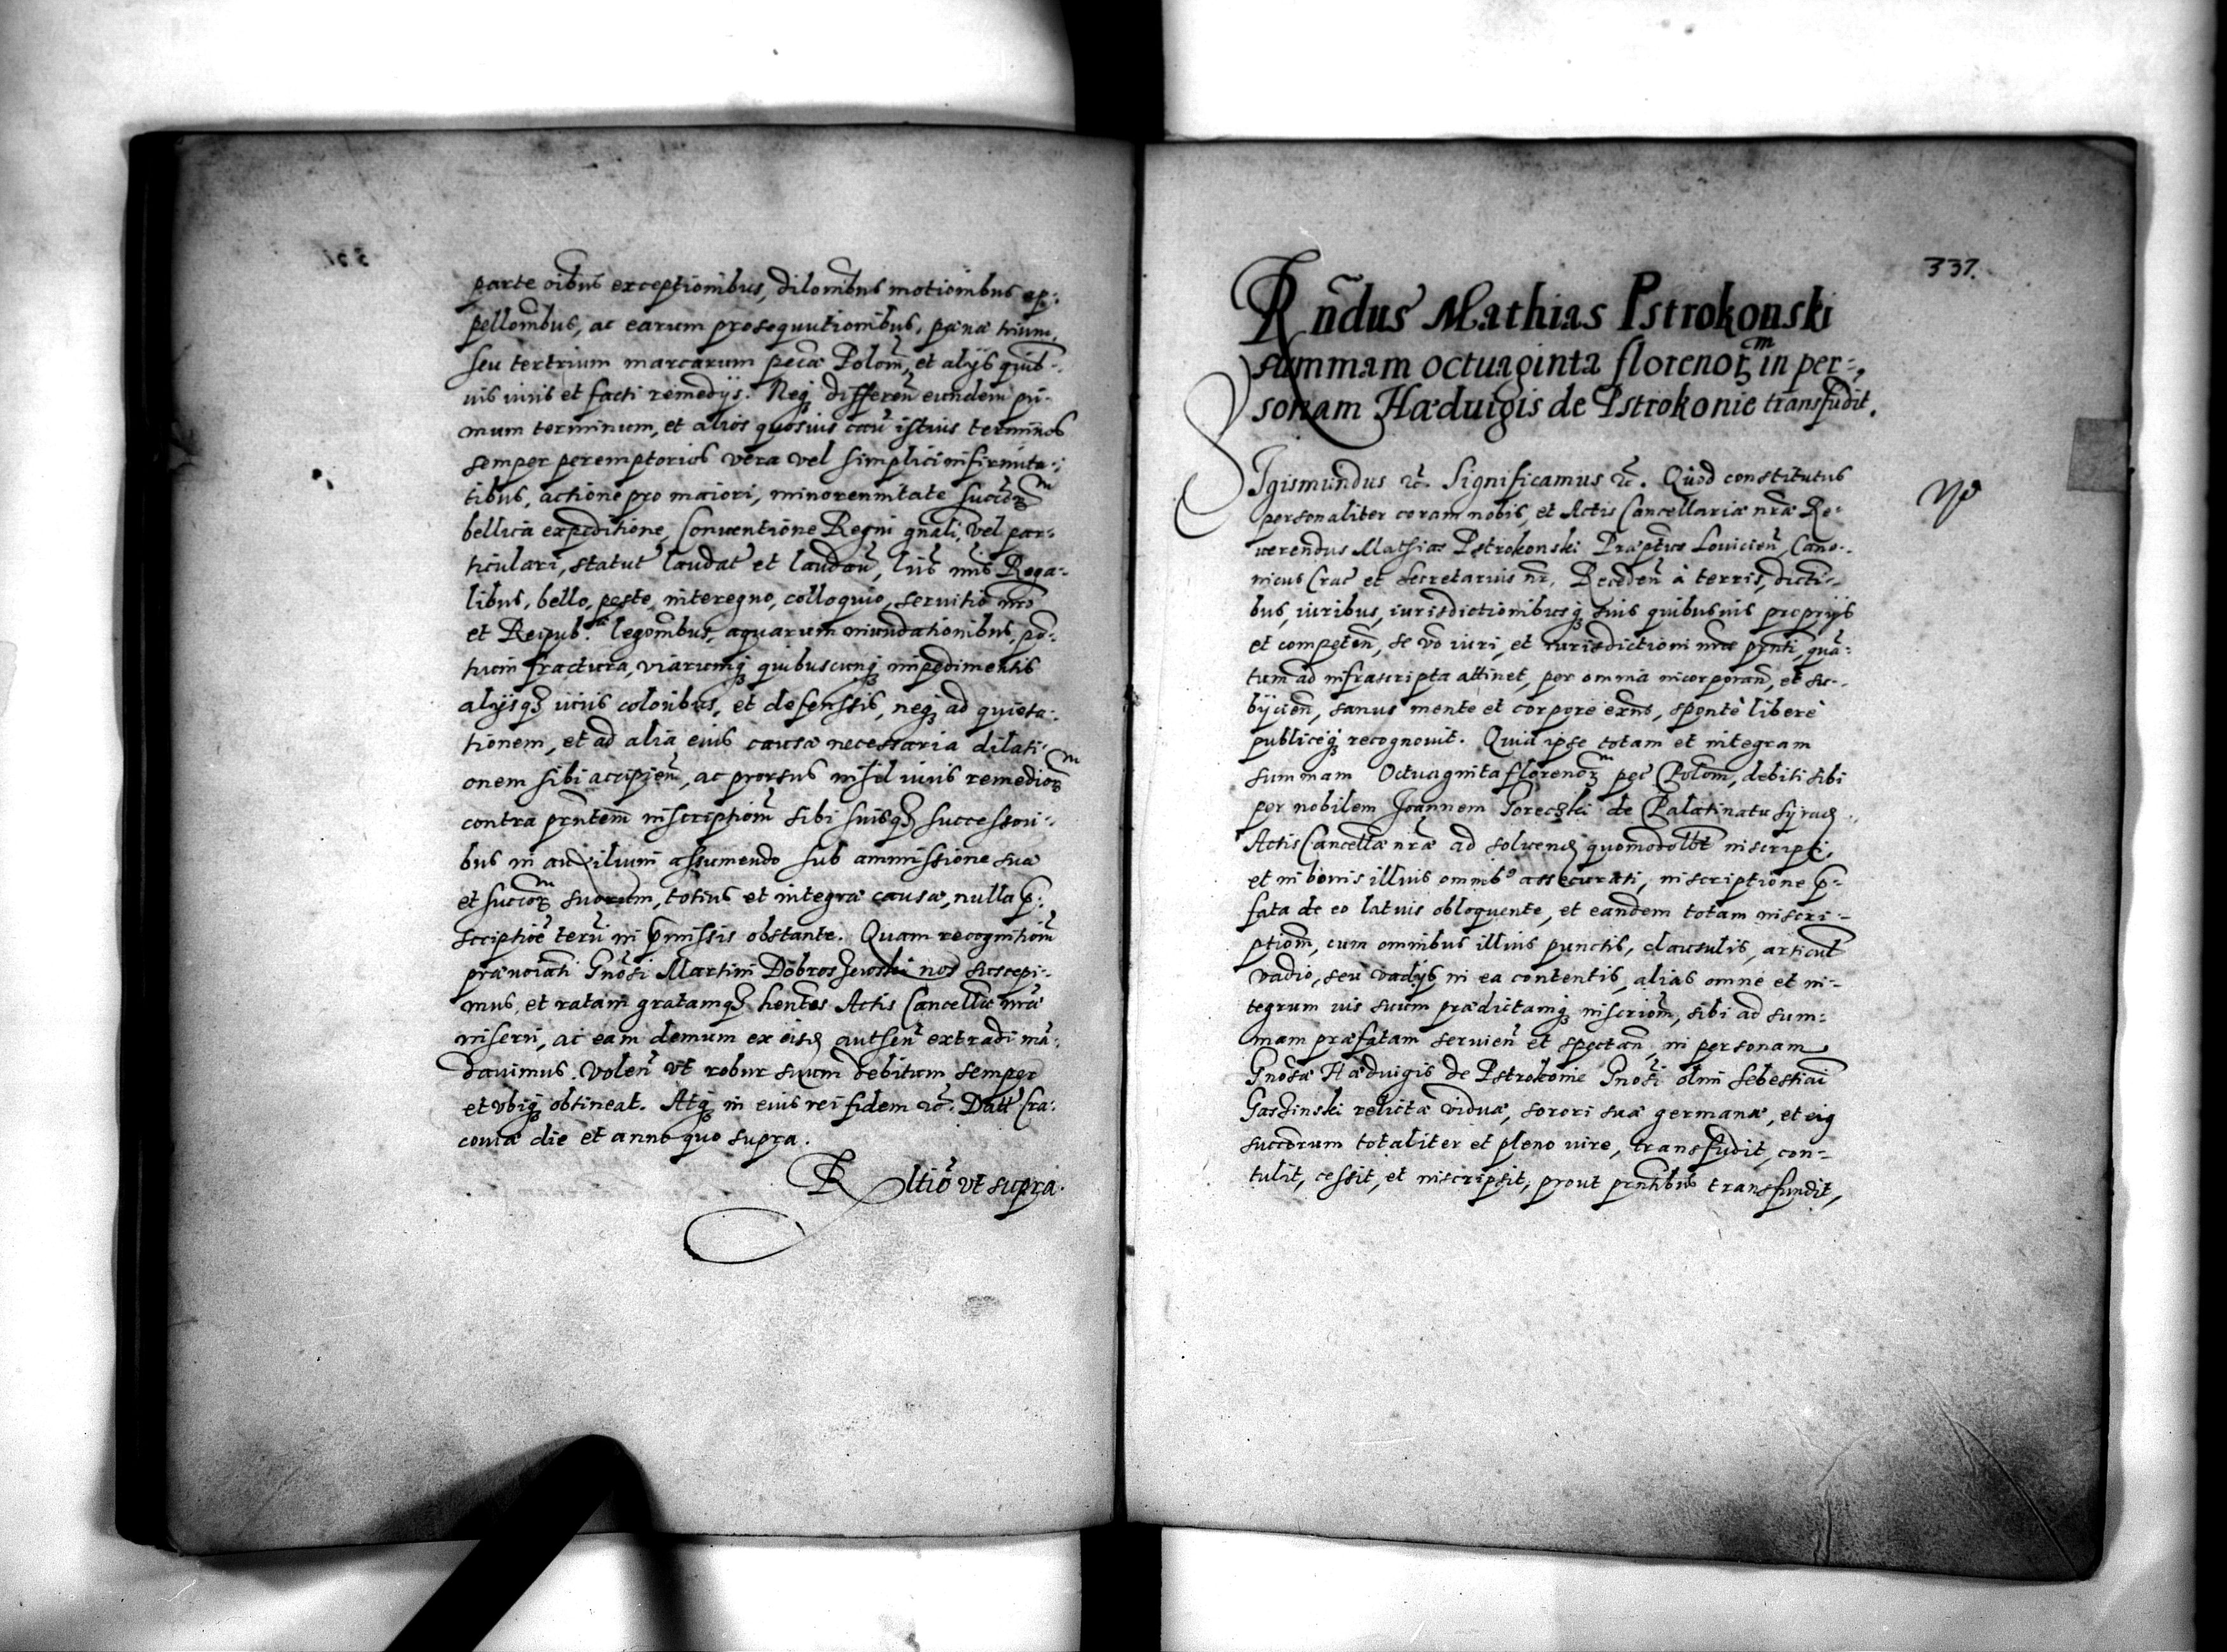 parte oibus exceptionibus, dilombus motionibus ap-
pellombus, ac earum prosequutionibus, pœnæ trium,
seu tertrium marcarum pecæ Polom, et alijs quib-
uis iuris et facti remedijs. Neq differen eundem pri-
mum terminum, et alios quosuis cau istius terminos
semper peremptorios vera vel simplici infirmita-
tibus, actione pro maiori, minorennitate succorm
bellica expeditione, Conuentione Regni gnali, vel par-
ticulari, statut laudat et laudan, lris nris Rega-
libus, bello, peste, interegno, colloquio, seruitio nro
et Reipub. legombus, aquarum inundationibus, po-
tium fractura, viarumq quibuscunq impedimentis
alijsq iuris coloribus, et defenssis, neq ad quieta-
tionem, et ad alia eius causæ necessaria dilati-
onem sibi accipien, ac prorsus nihil iuris remediorm
contra prntem inscriptiom sibi suisq successori-
bus in auxilium assumendo sub ammissione suæ
et succorm suorum, totius et integræ causæ, nulla p-
scriptioe teru in pmissis obstante. Quam recognitiom
prænoiati Gnosi Martini Dobroszewski nos suscepi-
mus, et ratam gratamq hentes Actis Cancellæ nræ
inseri, ac eam demum ex eisd authen extradi mã-
dauimus. Volen vt robur suum debitum semper
et vbiq obtineat. Atq in eius rei fidem &c. Datt Cra-
couiæ die et anno quo supra.
Rltio vt supra.
337.
Rndus Mathias Pstrokonski
summam octuaginta florenorm in per-
sonam Hæduigis de Pstrokonie transfudit.
Sigismundus &c. Significamus &c. Quod constitutus
personaliter coram nobis, et Actis Cancellariæ nræ Re-
uerendus Mathias Pstrokonski Præptus Louicien, Cano-
nicus Crac et Secretarius nr, Receden à terris, dicti-
bus, iuribus, iurisdictionibusq suis quibusuis proprijs
et competen, se vo iuri, et iurisdictioni nræ prnti, quã-
tum ad infrascripta attinet, per omnia incorporan, et su-
bijcien, sanus mente et corpore exns, sponte libere
publiceq recognouit. Quia ipse totam et integram
summam Octuaginta florenorm pec Polom, debiti sibi
per nobilem Joannem Poreczki de Palatinatu Syrad
Actis Cancellæ nræ ad soluend quomodolbt inscripti,
et in bonis illius omnib9 assecurati, inscriptione p-
fata de eo latuis obloquente, et eandem totam inscri-
ptiom, cum omnibus illius punctis, clausulis, articul
vadio, seu vadijs in ea contentis, alias omne et in-
tegrum ius suum prædictamq inscriom, sibi ad sum-
mam præfatam seruien et spectan, in personam
Gnosæ Hæduigis de Pstrokonie Gnosi olim Sebestiani
Gaszinski relictæ viduæ, sorori suæ germanæ, et eig
succorum totaliter et pleno iure, transfudit, con-
tulit, cessit, et inscripsit, prout prntibus transfundit,